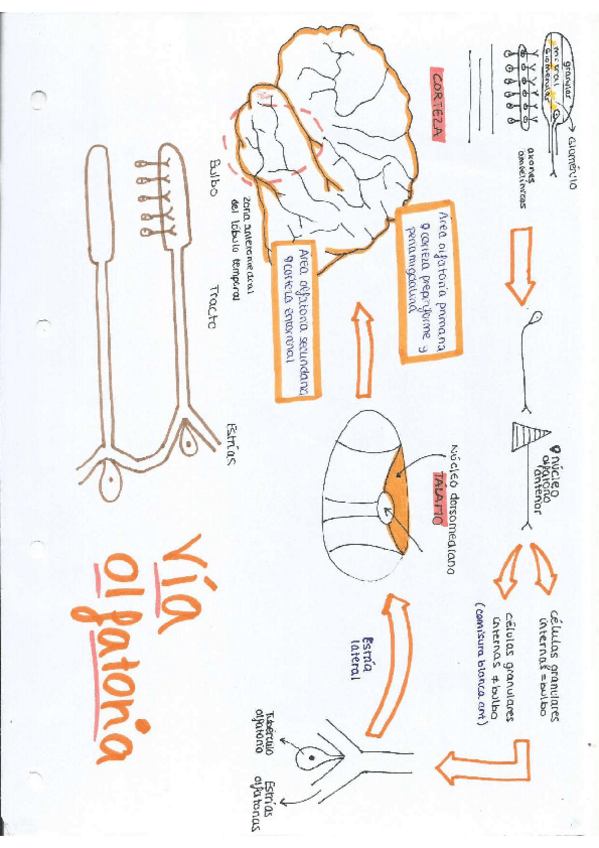 Vía
olfatoria
Glomérulo
granular
mitral
glomerular
axones
amielínicas
núcleo
olfatorio
anterior
células granulares
internas = bulbo
células granulares
internas ≠ bulbo
(comisura blanca ant)
Tubérculo
olfatorio
Estrías
olfatorias
Estría
lateral
Núcleo dorsomediano
TÁLAMO
Área olfatoria primaria
corteza prepiriforme y
periamigdalina
Área olfatoria secundaria
corteza entorrinal
CORTEZA
zona anteromedial
del lóbulo temporal
Bulbo
Tracto
Estrías